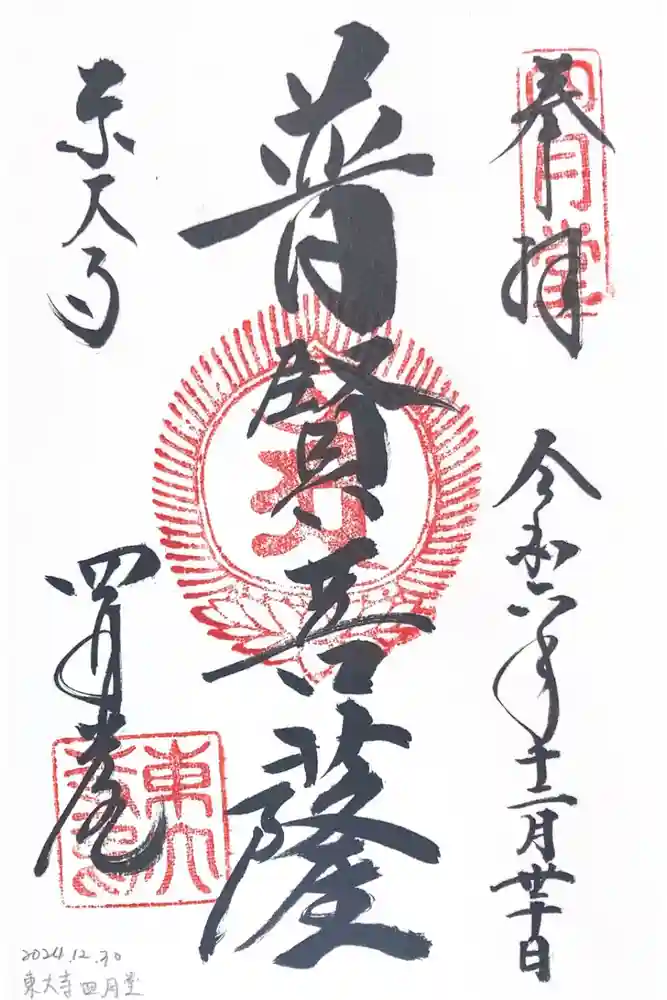 奉拝
四月堂
令和六年十二月卅十日
普賢菩薩
東大寺
四月堂
2024.12.30
東大寺四月堂